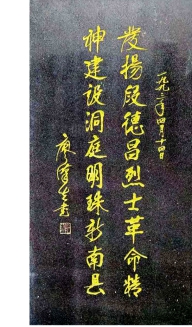 发扬段德昌烈士革命精
神建设洞庭明珠新南县
廖汉生书
一九九三年四月十四日